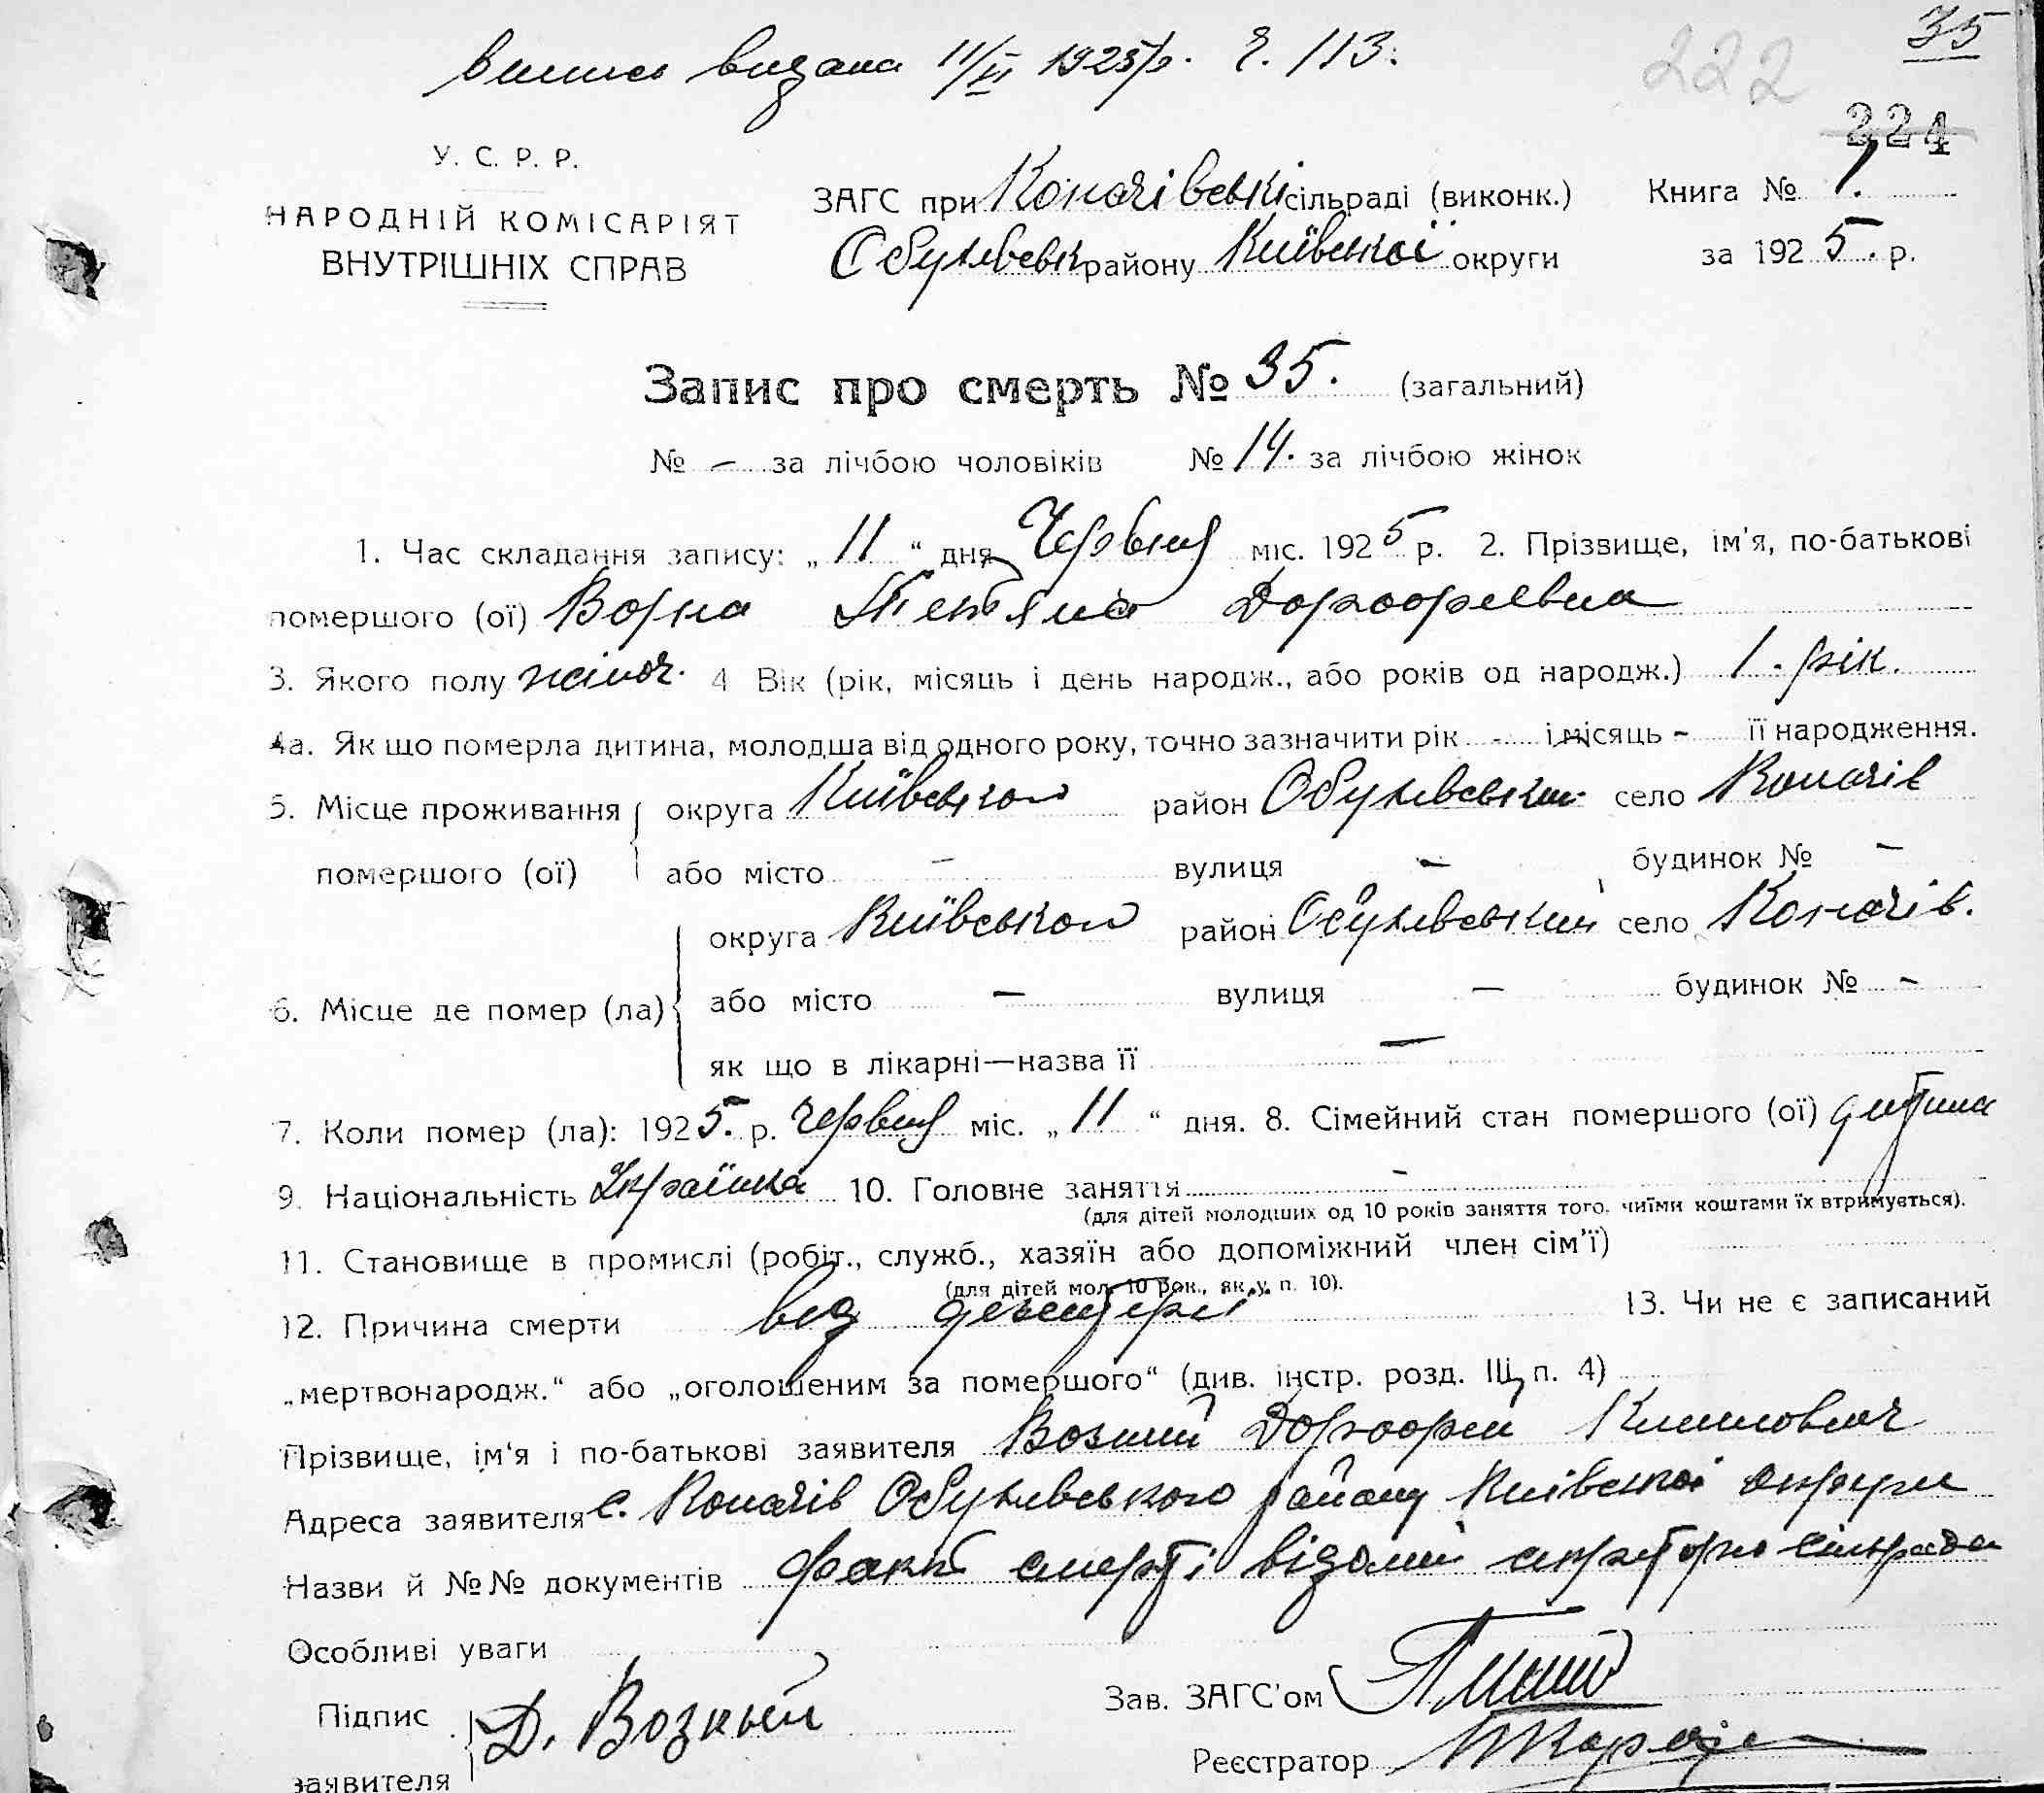 Випись видана 11/VI 1925 р. Ч. 113.
35
222
224
У. С. Р. Р.
НАРОДНІЙ КОМІСАРІЯТ
ВНУТРІШНІХ СПРАВ
ЗАГС при Копачівські сільраді (виконк.) Книга № 1.
Обухівськ району Київської округи за 1925. р.
Запис про смерть № 35. (загальний)
№ – за лічбою чоловіків № 14. за лічбою жінок
1. Час складання запису: „11“ дня Червня міс. 1925 р. 2. Прізвище, ім'я, по-батькові
помершого (ої) Возна Тетяна Дорофеївна
3. Якого полу жіноч. 4 Вік (рік, місяць і день народж., або років од народж.) 1. рік.
4а. Як що померла дитина, молодша від одного року, точно зазначити рік - і місяць - її народження.
5. Місце проживання округа Київської район Обухівський село Копачів
помершого (ої) або місто – вулиця – будинок № –
округа Київської район Обухівський село Копачів.
6. Місце де помер (ла) або місто – вулиця – будинок № –
як що в лікарні—назва її –
7. Коли помер (ла): 1925. р. Червня міс. „11“ дня. 8. Сімейний стан помершого (ої) дитина
9. Національність Українка 10. Головне заняття –
(для дітей молодших од 10 років заняття того, чиїми коштами їх втримується).
11. Становище в промислі (робіт., служб., хазяїн або допоміжний член сім'ї)
(для дітей мол. 10 рок., як у п. 10).
12. Причина смерти від дезентері 13. Чи не є записаний
„мертвонародж.“ або „оголошеним за помершого“ (див. інстр. розд. III, п. 4)
Прізвище, ім'я і по-батькові заявителя Возний Дорофей Климович
Адреса заявителя с. Копачів Обухівського району Київської округи
Назви й №№ документів факт смерті відомий секреторю сільради
Особливі уваги
Підпис заявителя Д. Возный
Зав. ЗАГС'ом
Реєстратор